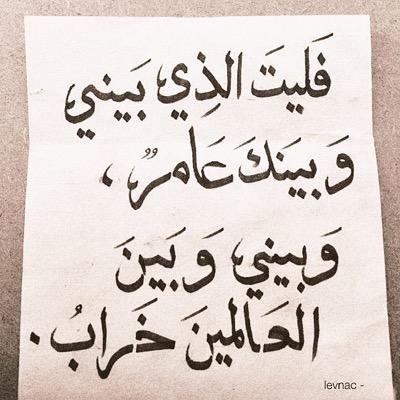 فَليتَ الذِي بَيني
وَبينَكَ عَامرٌ،
وَبيني وَبينَ
العَالمينَ خَرابُ.
levnac -